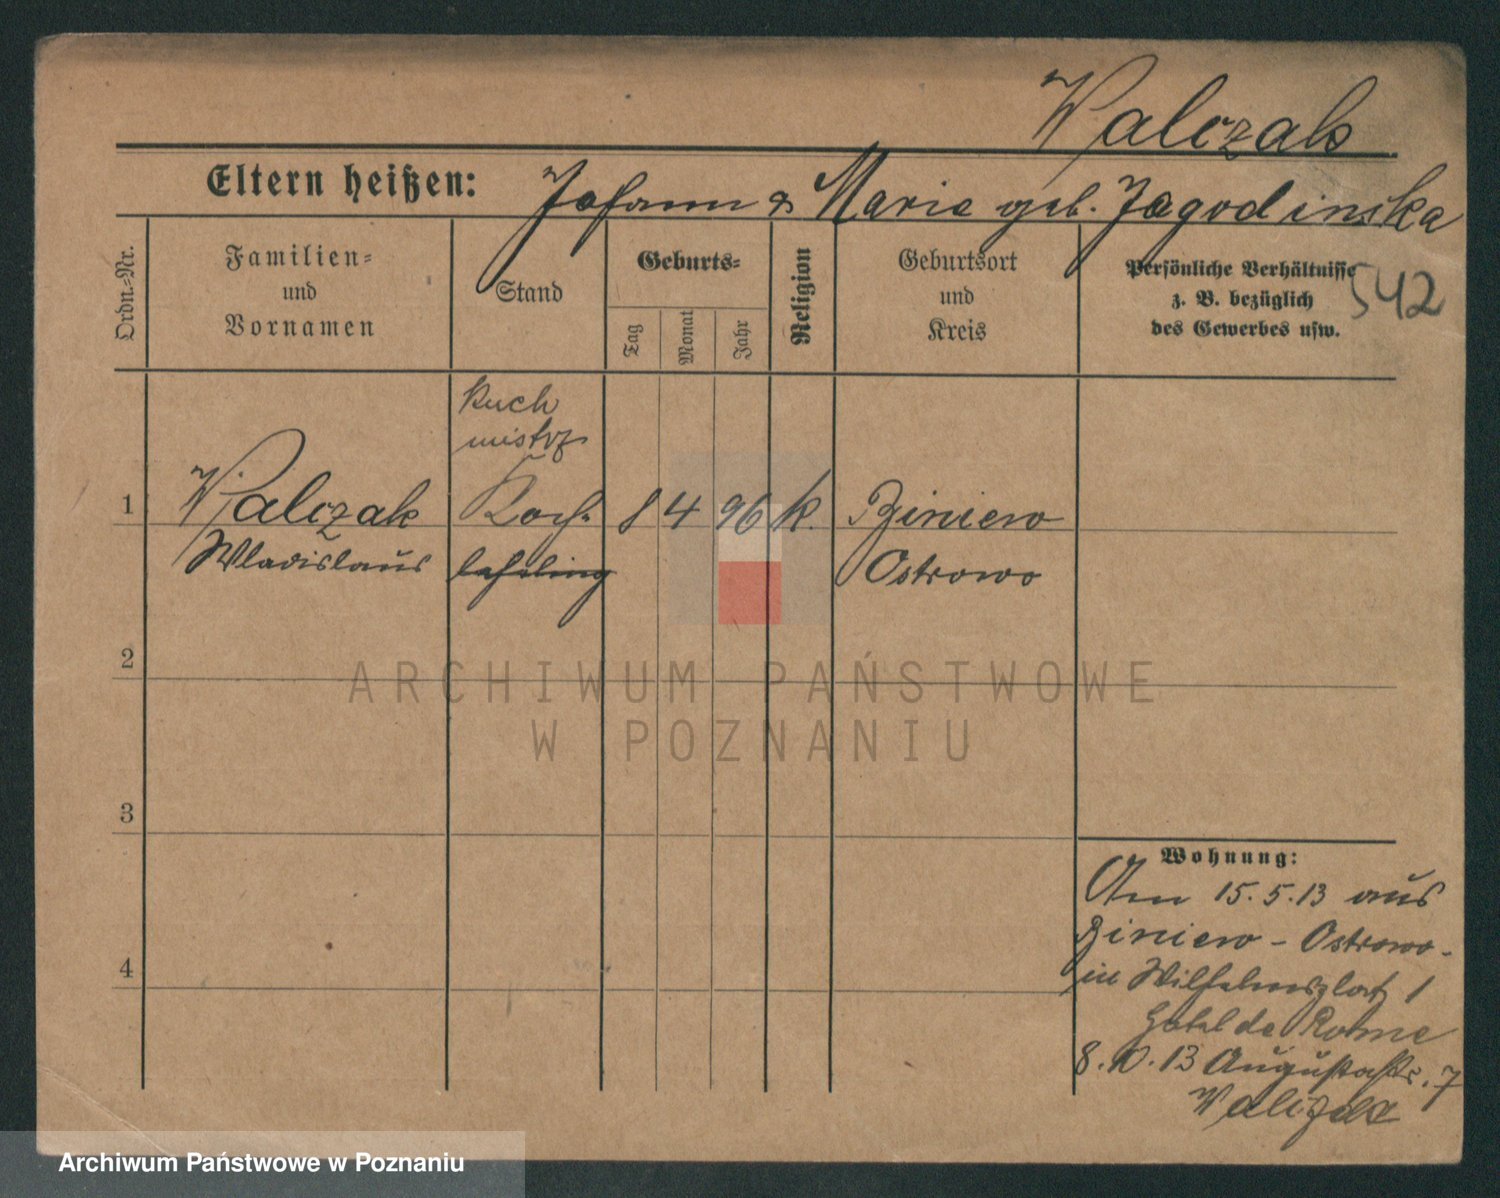 Walczak
Eltern heißen: Johann & Marie geb. Jagodinska
Ordn.-Nr.
Familien-
und
Vornamen
Stand
Geburts-
Tag
Monat
Jahr
Religion
Geburtsort
und
Kreis
Persönliche Verhältnisse
z. B. bezüglich
des Gewerbes usw.
542
Kuch
mistrz
1 Walczak Koch- 8 4 96 k. Biniew
Wladislaus lehrling Ostrowo
2
ARCHIWUM PAŃSTWOWE
W POZNANIU
3
4
Wohnung:
Am 15.5.13 aus
Biniew - Ostrowo
in Wilhelmsplatz 1
Hotel de Rome
8.10.13 Augustastr. 7
Archiwum Państwowe w Poznaniu